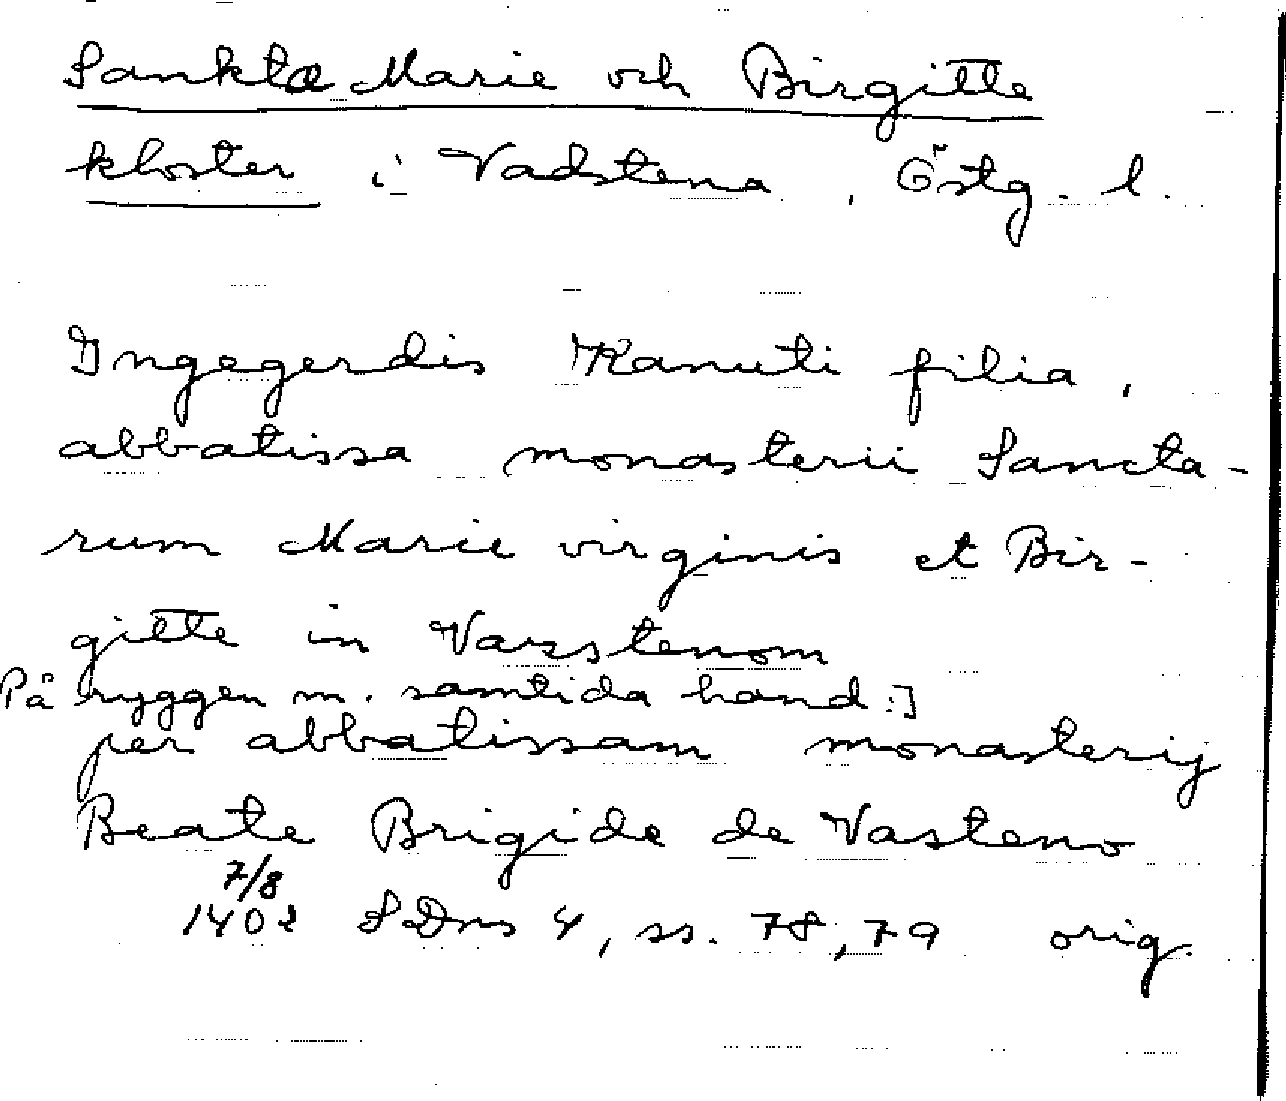 Sankta Marie och Birgitte
kloster i Vadstena, Östg. l.
Ingegerdis Kanuti filia,
abbatissa monasterii Sancta-
rum Marie virginis et Bir-
gitte in Varzstenom
På ryggen m. samtida hand:]
per abbatissam monasterij
Beate Brigide de Vasteno
7/8
1402 SDns 4, ss. 78, 79 orig.